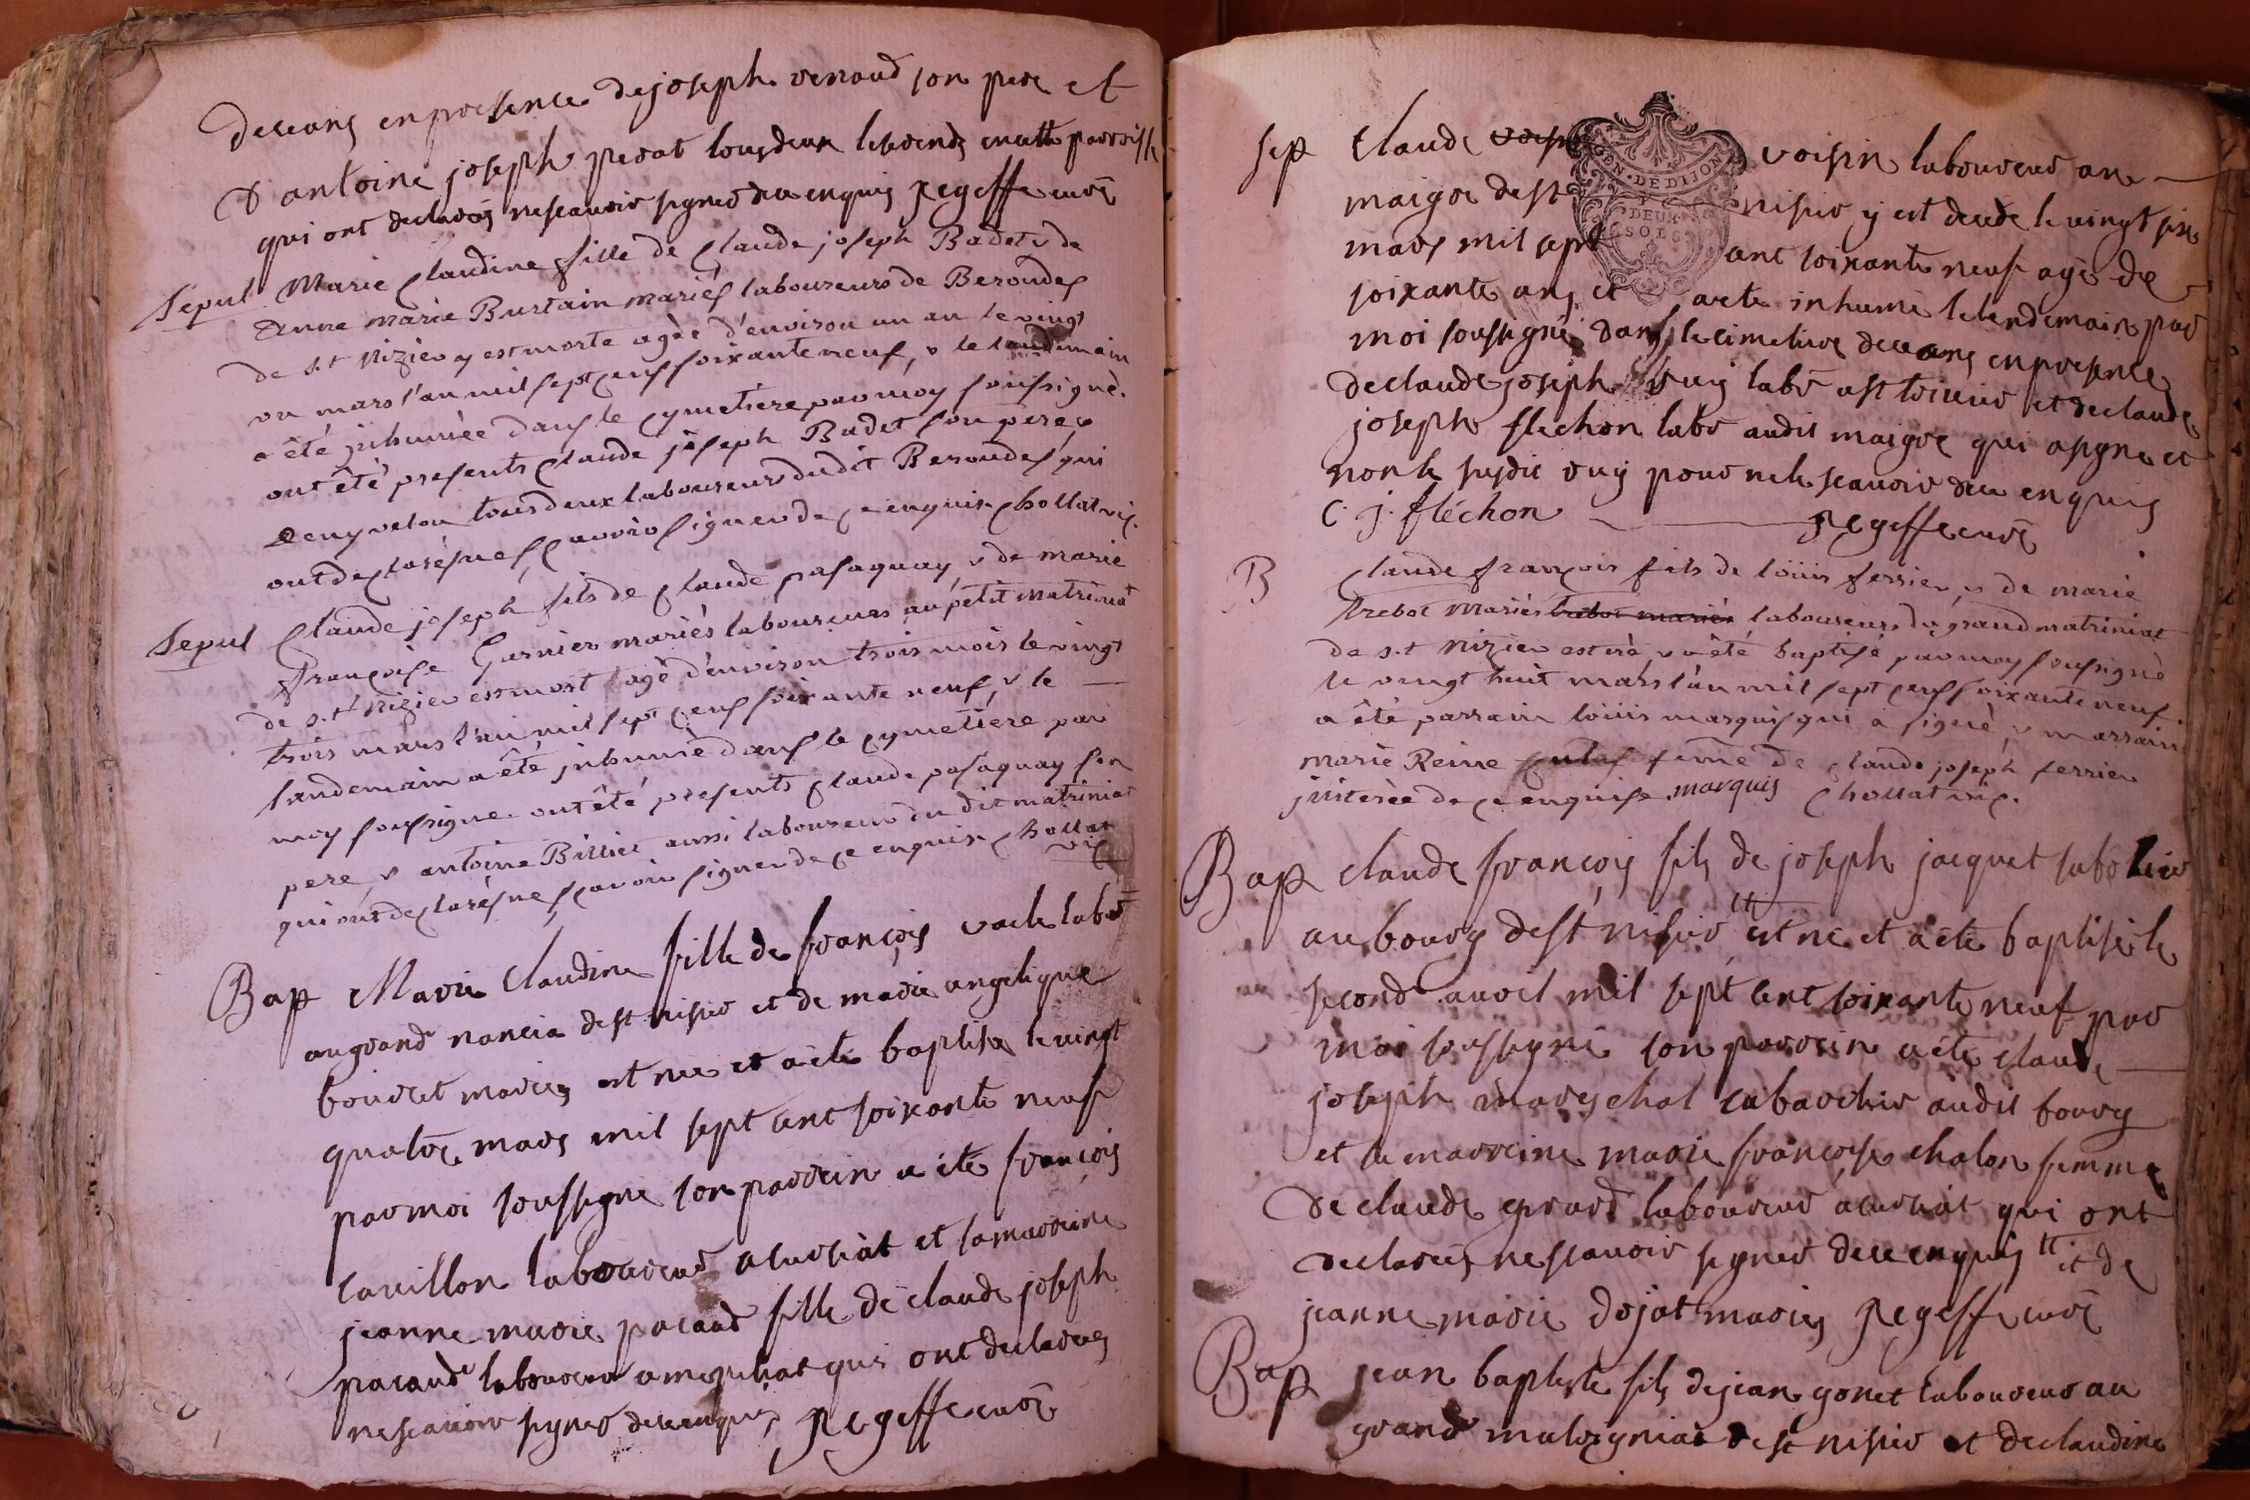 de ceans en presence de joseph renaud son pere et
d'antoine joseph perat tous deux
qui ont declarés ne scavoir signer de ce enquis regeffe curé
Sepul Marie Claudine fille de Claude joseph Badet & de
Anne marie Burtain mariés laboureurs de Beroudes
de s.t Nizier y est morte agée d'environ un an le vingt
un mars l'an mil sept cens soixante neuf, & le landemain
a été inhumée dans le cymetiere par moy soussigné.
ont été presents Claude joseph Badet son pere &
Deny velon tous deux laboureurs dudit Beroudes qui
ont declaré ne scavoir signer de ce enquis Chollat vic.
Sepul Claude joseph fils de Claude pasaquay & de marie
françoise Garnier mariés laboureurs au petit matriniat
de s.t Nizier est mort agé d'environ trois mois le vingt
trois mars l'an mil sept cens soixante neuf, & le
landemain a été inhumé dans le cymetiere par
moy soussigné. ont été presents Claude pasaquay son
pere, & antoine Billiet aussi laboureur du dit matriniat
qui ont declaré ne scavoir signer de ce enquis Chollat
vic
Bap Marie Claudine fille de françois vacle labr
au grand nancia de st nisier et de marie angelique
bourdet mariés est née et a été baptisée le vingt
quatre mars mil sept cent soixante neuf
par moi soussigné son parrein a été françois
cavillon laboureur a curciat et sa marreine
jeanne marie pacaud fille de claude joseph
pacaud laboureur a qui ont declarés
ne scavoir signer de ce enquis regeffe curé
sep Claude voisin laboureur au
maigre de st nisier y est decede le vingt six
mars mil sept cent soixante neuf agé de
soixante ans et a ete inhumé le lendemain par
moi soussigné dans le cimetiere de ceans en presence
de claude joseph vuy labr et de claude
joseph flechon labr audit maigre qui a signe et
non le susdit vuy pour ne le scavoir de ce enquis
C. j. fléchon regeffe curé
B Claude françois fils de loüis ferrier, & de marie
trebot mariés trebot mariés laboureurs du grand matriniat
de s.t Nizier est né & a été baptisé par moy soussigné
le vingt huit mars l'an mil sept cens soixante neuf.
a été parrain loüis marquis qui a signé, & marraine
marie Reine femme de claude joseph ferrier
de ce enquise marquis Chollat vic.
Bap claude françois fils de joseph jacquet
au bourg de st nisier tt est né et a été baptisé le
second avril mil sept cent soixante neuf par
moi soussigné son parrein a été claude
joseph mareschal cabaretier audit bourg
et sa marreine marie françoise chalon femme
de claude girard laboureur a curciat qui ont
declarés ne scavoir signer de ce enquis tt et de
jeanne marie dojat mariés regeffe curé
Bap jean baptiste fils de jean gonet laboureur au
grand de st nisier et de claudine
GEN. DE DIJON
DEUX
SOLS